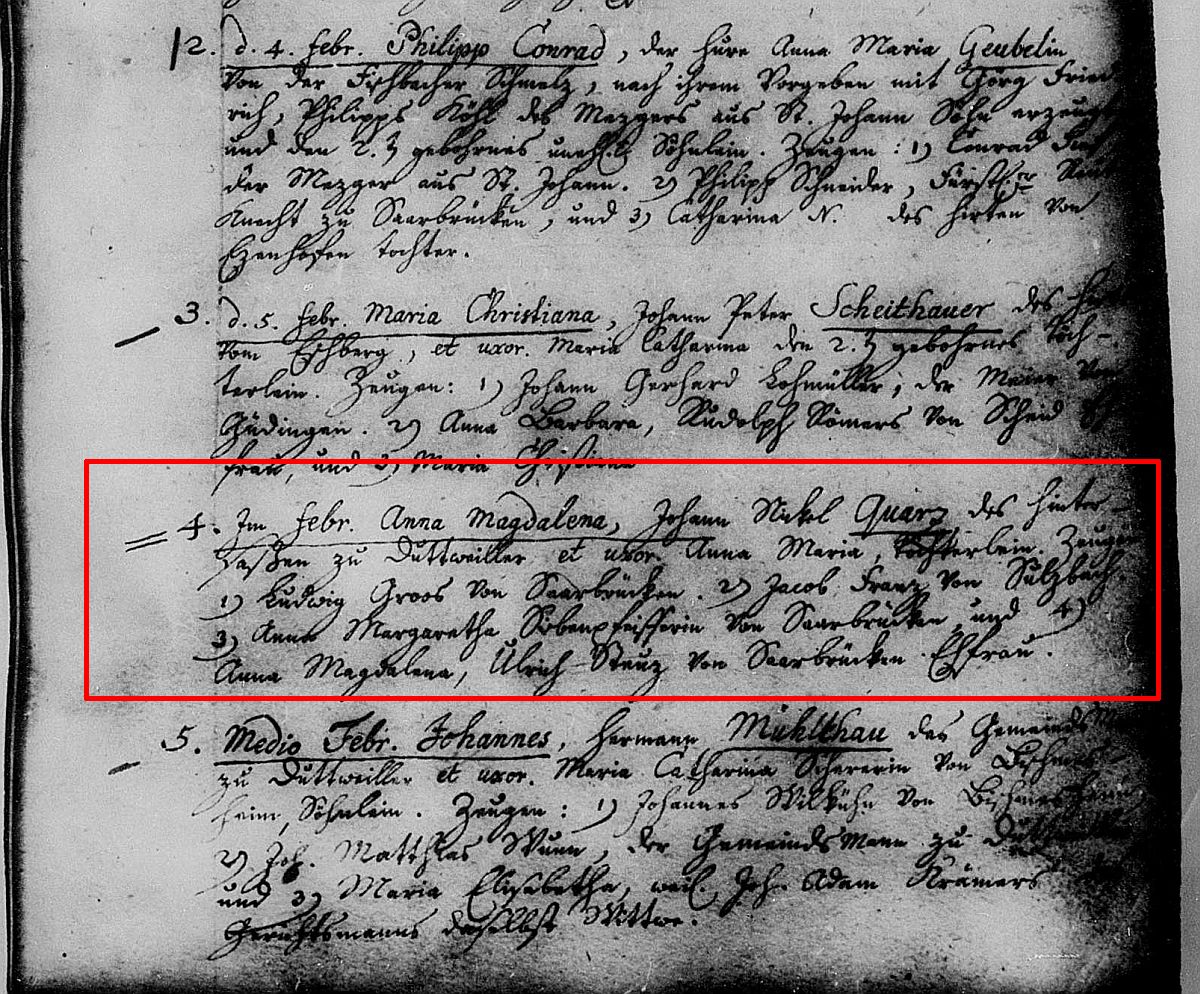 2. d. 4. Febr. Philipp Conrad, der Hure Anna Maria Geubelin
von der Fischbacher Schmelz, nach ihrem Vorgeben mit Görg Fried
rich, Philipps Köhl des Mezgers aus St. Johann Sohn erzeugt
und den 2. gebohrnes unehl. Söhnlein. Zeugen: 1) Conrad
der Mezger aus St. Johann. 2) Philipp Schneider, Fürstl.
Knecht zu Saarbrücken, und 3) Catharina N. des Hirten von
Ezenhofen Tochter.
3. d. 5. Febr. Maria Christiana, Johann Peter Scheithauer des
vom Eschberg, et uxor. Maria Catharina den 2. gebohrnes Töch-
terlein. Zeugen: 1) Johann Gerhard Lohmüller, der Meier von
Güdingen. 2) Anna Barbara, Rudolph Römers von Scheid
frau, und 3) Maria Christiana
4. Im Febr. Anna Magdalena, Johann Nickel Quarz des Hinter-
saßen zu Duttweiller et uxor. Anna Maria, Töchterlein. Zeugen
1) Ludwig Groos von Saarbrücken. 2) Jacob Franz von Sulzbach.
3) Anna Margaretha Siebenpfeifferin von Saarbrücken und 4)
Anna Magdalena, Ulrich Steuz von Saarbrücken Ehfrau.
5. Medio Febr. Johannes, Hermann Mühlthau des Gemeinds
zu Duttweiller et uxor. Maria Catharina Schererin von Bischmis-
heim, Söhnlein. Zeugen: 1) Johannes Wilkühn von
2) Joh. Matthias Wunn, der Gemeindsmann zu Duttweiller
und 3) Maria Elisabetha, weil. Joh. Adam Krämers
Gerichtsmanns daselbst Wittwe.